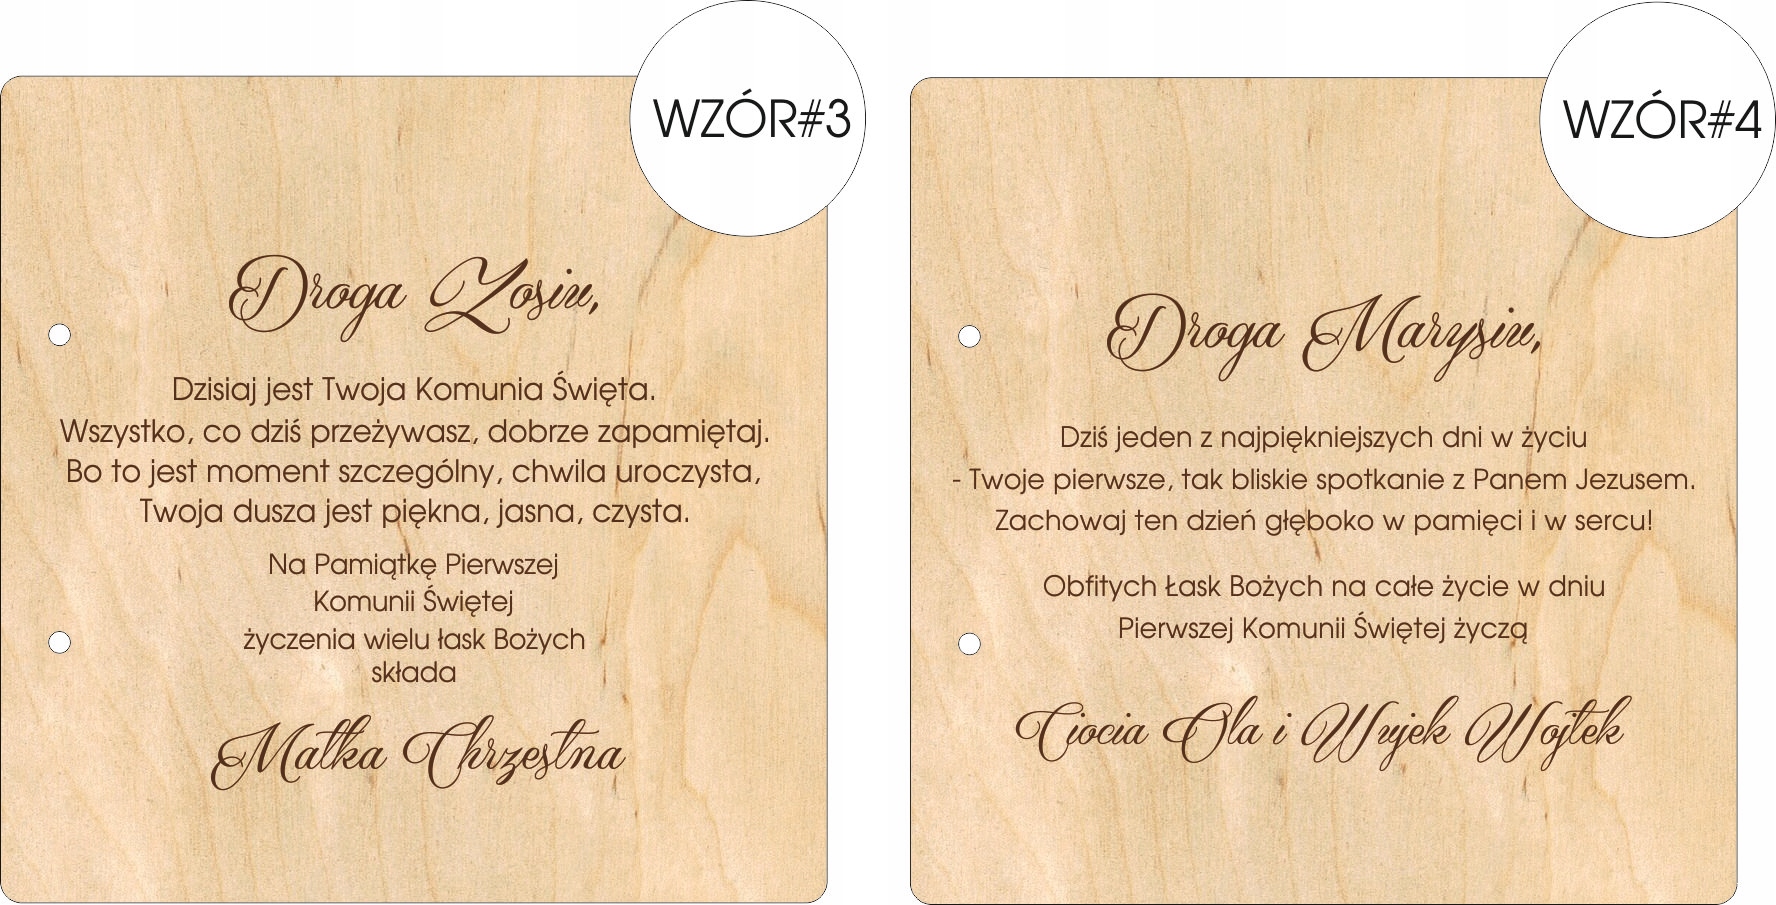 WZÓR#3
Droga Zosiu,
Dzisiaj jest Twoja Komunia Święta.
Wszystko, co dziś przeżywasz, dobrze zapamiętaj.
Bo to jest moment szczególny, chwila uroczysta,
Twoja dusza jest piękna, jasna, czysta.
Na Pamiątkę Pierwszej
Komunii Świętej
życzenia wielu łask Bożych
składa
Matka Chrzestna
WZÓR#4
Droga Marysiu,
Dziś jeden z najpiękniejszych dni w życiu
- Twoje pierwsze, tak bliskie spotkanie z Panem Jezusem.
Zachowaj ten dzień głęboko w pamięci i w sercu!
Obfitych Łask Bożych na całe życie w dniu
Pierwszej Komunii Świętej życzą
Ciocia Ola i Wujek Wojtek